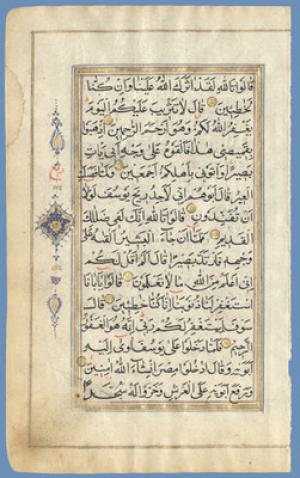 قَالُوا تَاللّٰهِ لَقَدْ اٰثَرَكَ اللّٰهُ عَلَيْنَا وَاِنْ كُنَّا
لَخٰطِئِينَ قَالَ لَا تَثْرِيبَ عَلَيْكُمُ الْيَوْمَ
يَغْفِرُ اللّٰهُ لَكُمْ وَهُوَ اَرْحَمُ الرَّاحِمِينَ اِذْهَبُوا
بِقَمِيصِي هٰذَا فَاَلْقُوهُ عَلٰى وَجْهِ اَبِي يَأْتِ
بَصِيرًا وَأْتُونِي بِاَهْلِكُمْ اَجْمَعِينَ وَلَمَّا فَصَلَتِ
الْعِيرُ قَالَ اَبُوهُمْ اِنِّي لَاَجِدُ رِيحَ يُوسُفَ لَوْلَا
اَنْ تُفَنِّدُونِ قَالُوا تَاللّٰهِ اِنَّكَ لَفِي ضَلَالِكَ
الْقَدِيمِ فَلَمَّا اَنْ جَاءَ الْبَشِيرُ اَلْقٰيهُ عَلٰى
وَجْهِهِ فَارْتَدَّ بَصِيرًا قَالَ اَلَمْ اَقُلْ لَكُمْ
اِنِّي اَعْلَمُ مِنَ اللّٰهِ مَا لَا تَعْلَمُونَ قَالُوا يَا اَبَانَا
اسْتَغْفِرْ لَنَا ذُنُوبَنَا اِنَّا كُنَّا خٰطِئِينَ قَالَ
سَوْفَ اَسْتَغْفِرُ لَكُمْ رَبِّي اِنَّهُ هُوَ الْغَفُورُ
الرَّحِيمُ فَلَمَّا دَخَلُوا عَلٰى يُوسُفَ اٰوٰى اِلَيْهِ
اَبَوَيْهِ وَقَالَ ادْخُلُوا مِصْرَ اِنْ شَاءَ اللّٰهُ اٰمِنِينَ
وَرَفَعَ اَبَوَيْهِ عَلَى الْعَرْشِ وَخَرُّوا لَهُ سُجَّدًا